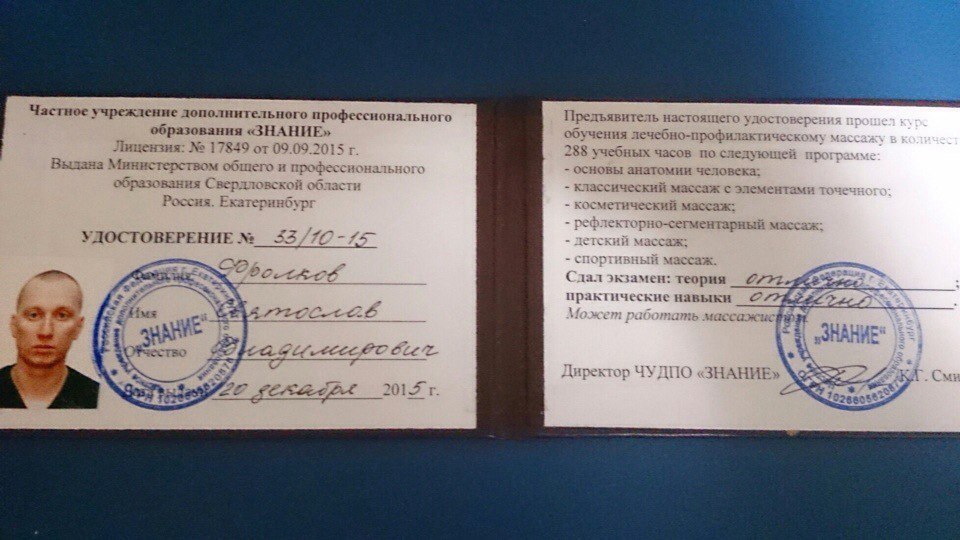 Частное учреждение дополнительного профессионального
образования «ЗНАНИЕ»
Лицензия: № 17849 от 09.09.2015 г.
Выдана Министерством общего и профессионального
образования Свердловской области
Россия. Екатеринбург
УДОСТОВЕРЕНИЕ № 33/10-15
Фролков
Имя
Отчество Владимирович
20 декабря 2015 г.
„ЗНАНИЕ“
Предъявитель настоящего удостоверения прошел курс
обучения лечебно-профилактическому массажу в количест
288 учебных часов по следующей программе:
- основы анатомии человека;
- классический массаж с элементами точечного;
- косметический массаж;
- рефлекторно-сегментарный массаж;
- детский массаж;
- спортивный массаж.
Сдал экзамен: теория отлично;
практические навыки отлично.
Может работать массажистом.
Директор ЧУДПО «ЗНАНИЕ» К.Г. Сми
„ЗНАНИЕ“